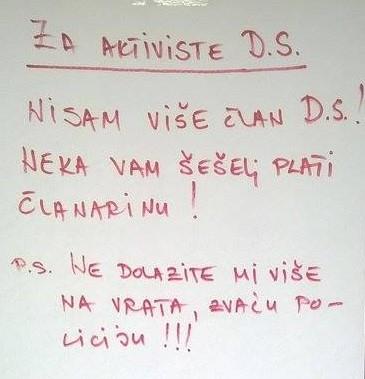 ZA AKTIVISTE D.S.
NISAM VIŠE ČLAN D.S.!
NEKA VAM ŠEŠELJ PLATI
ČLANARINU!
P.S. NE DOLAZITE MI VIŠE
NA VRATA, ZVAĆU PO-
LICIJU!!!